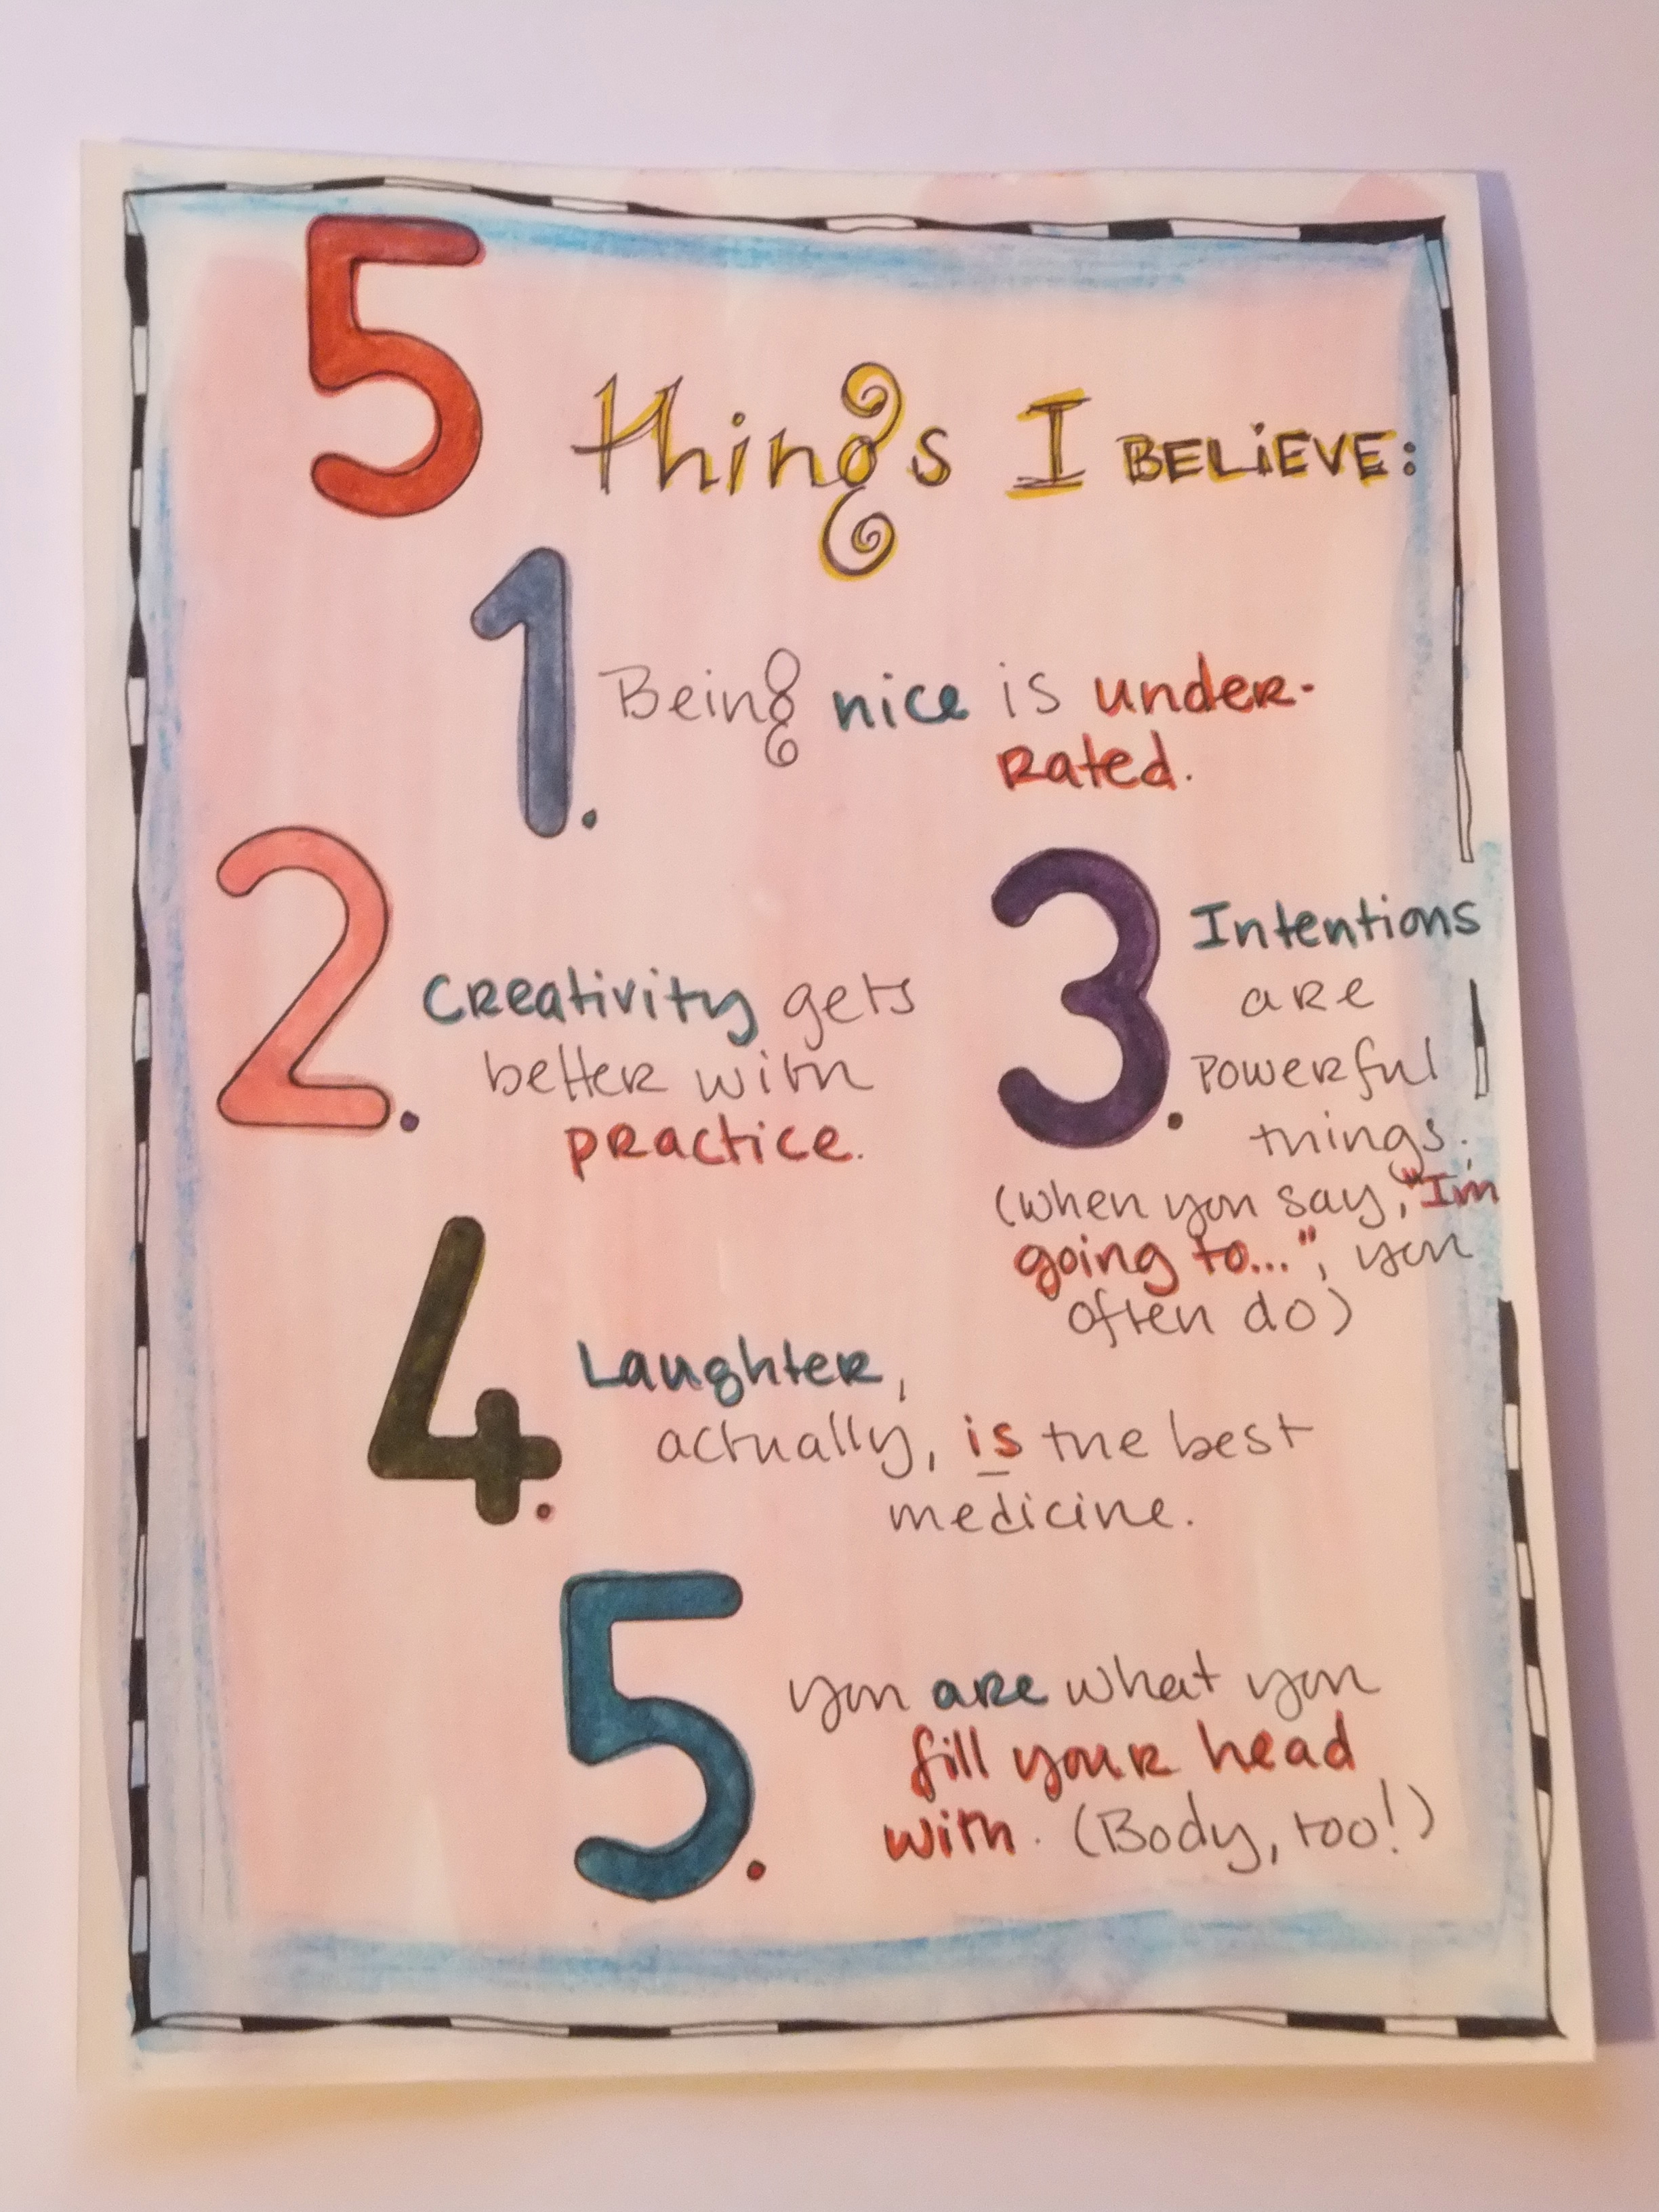 5 things I BELIEVE:
1. Being nice is under-
rated.
2. Creativity gets
better with
practice.
3. Intentions
are
powerful
things.
(when you say, "I'm
going to...", you
often do)
4. Laughter,
actually, is the best
medicine.
5. you are what you
fill your head
with. (Body, too!)